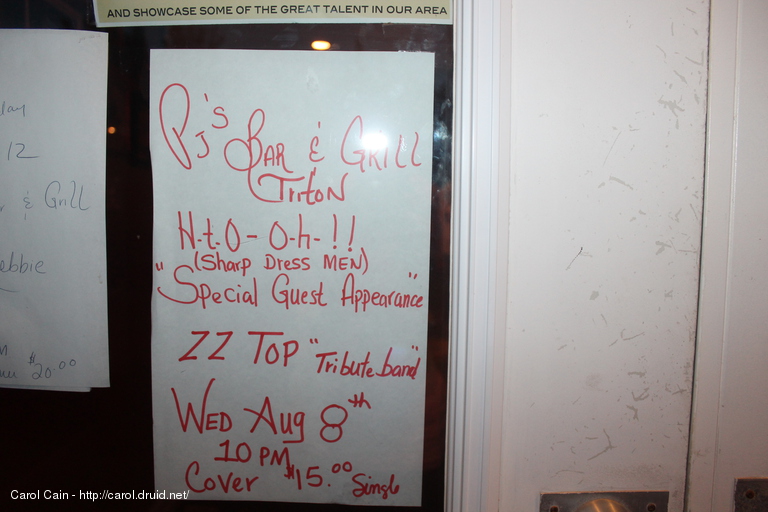 AND SHOWCASE SOME OF THE GREAT TALENT IN OUR AREA
PJ's
BAR & GRILL
TRITON
H-t-O- O-h-!!
(SHARP DRESS MEN)
"Special Guest Appearance"
ZZ TOP "Tribute band"
WED Aug 8th
10 PM
Cover $15.00 Single
12
& Grill
$20.00
Carol Cain - http://carol.druid.net/